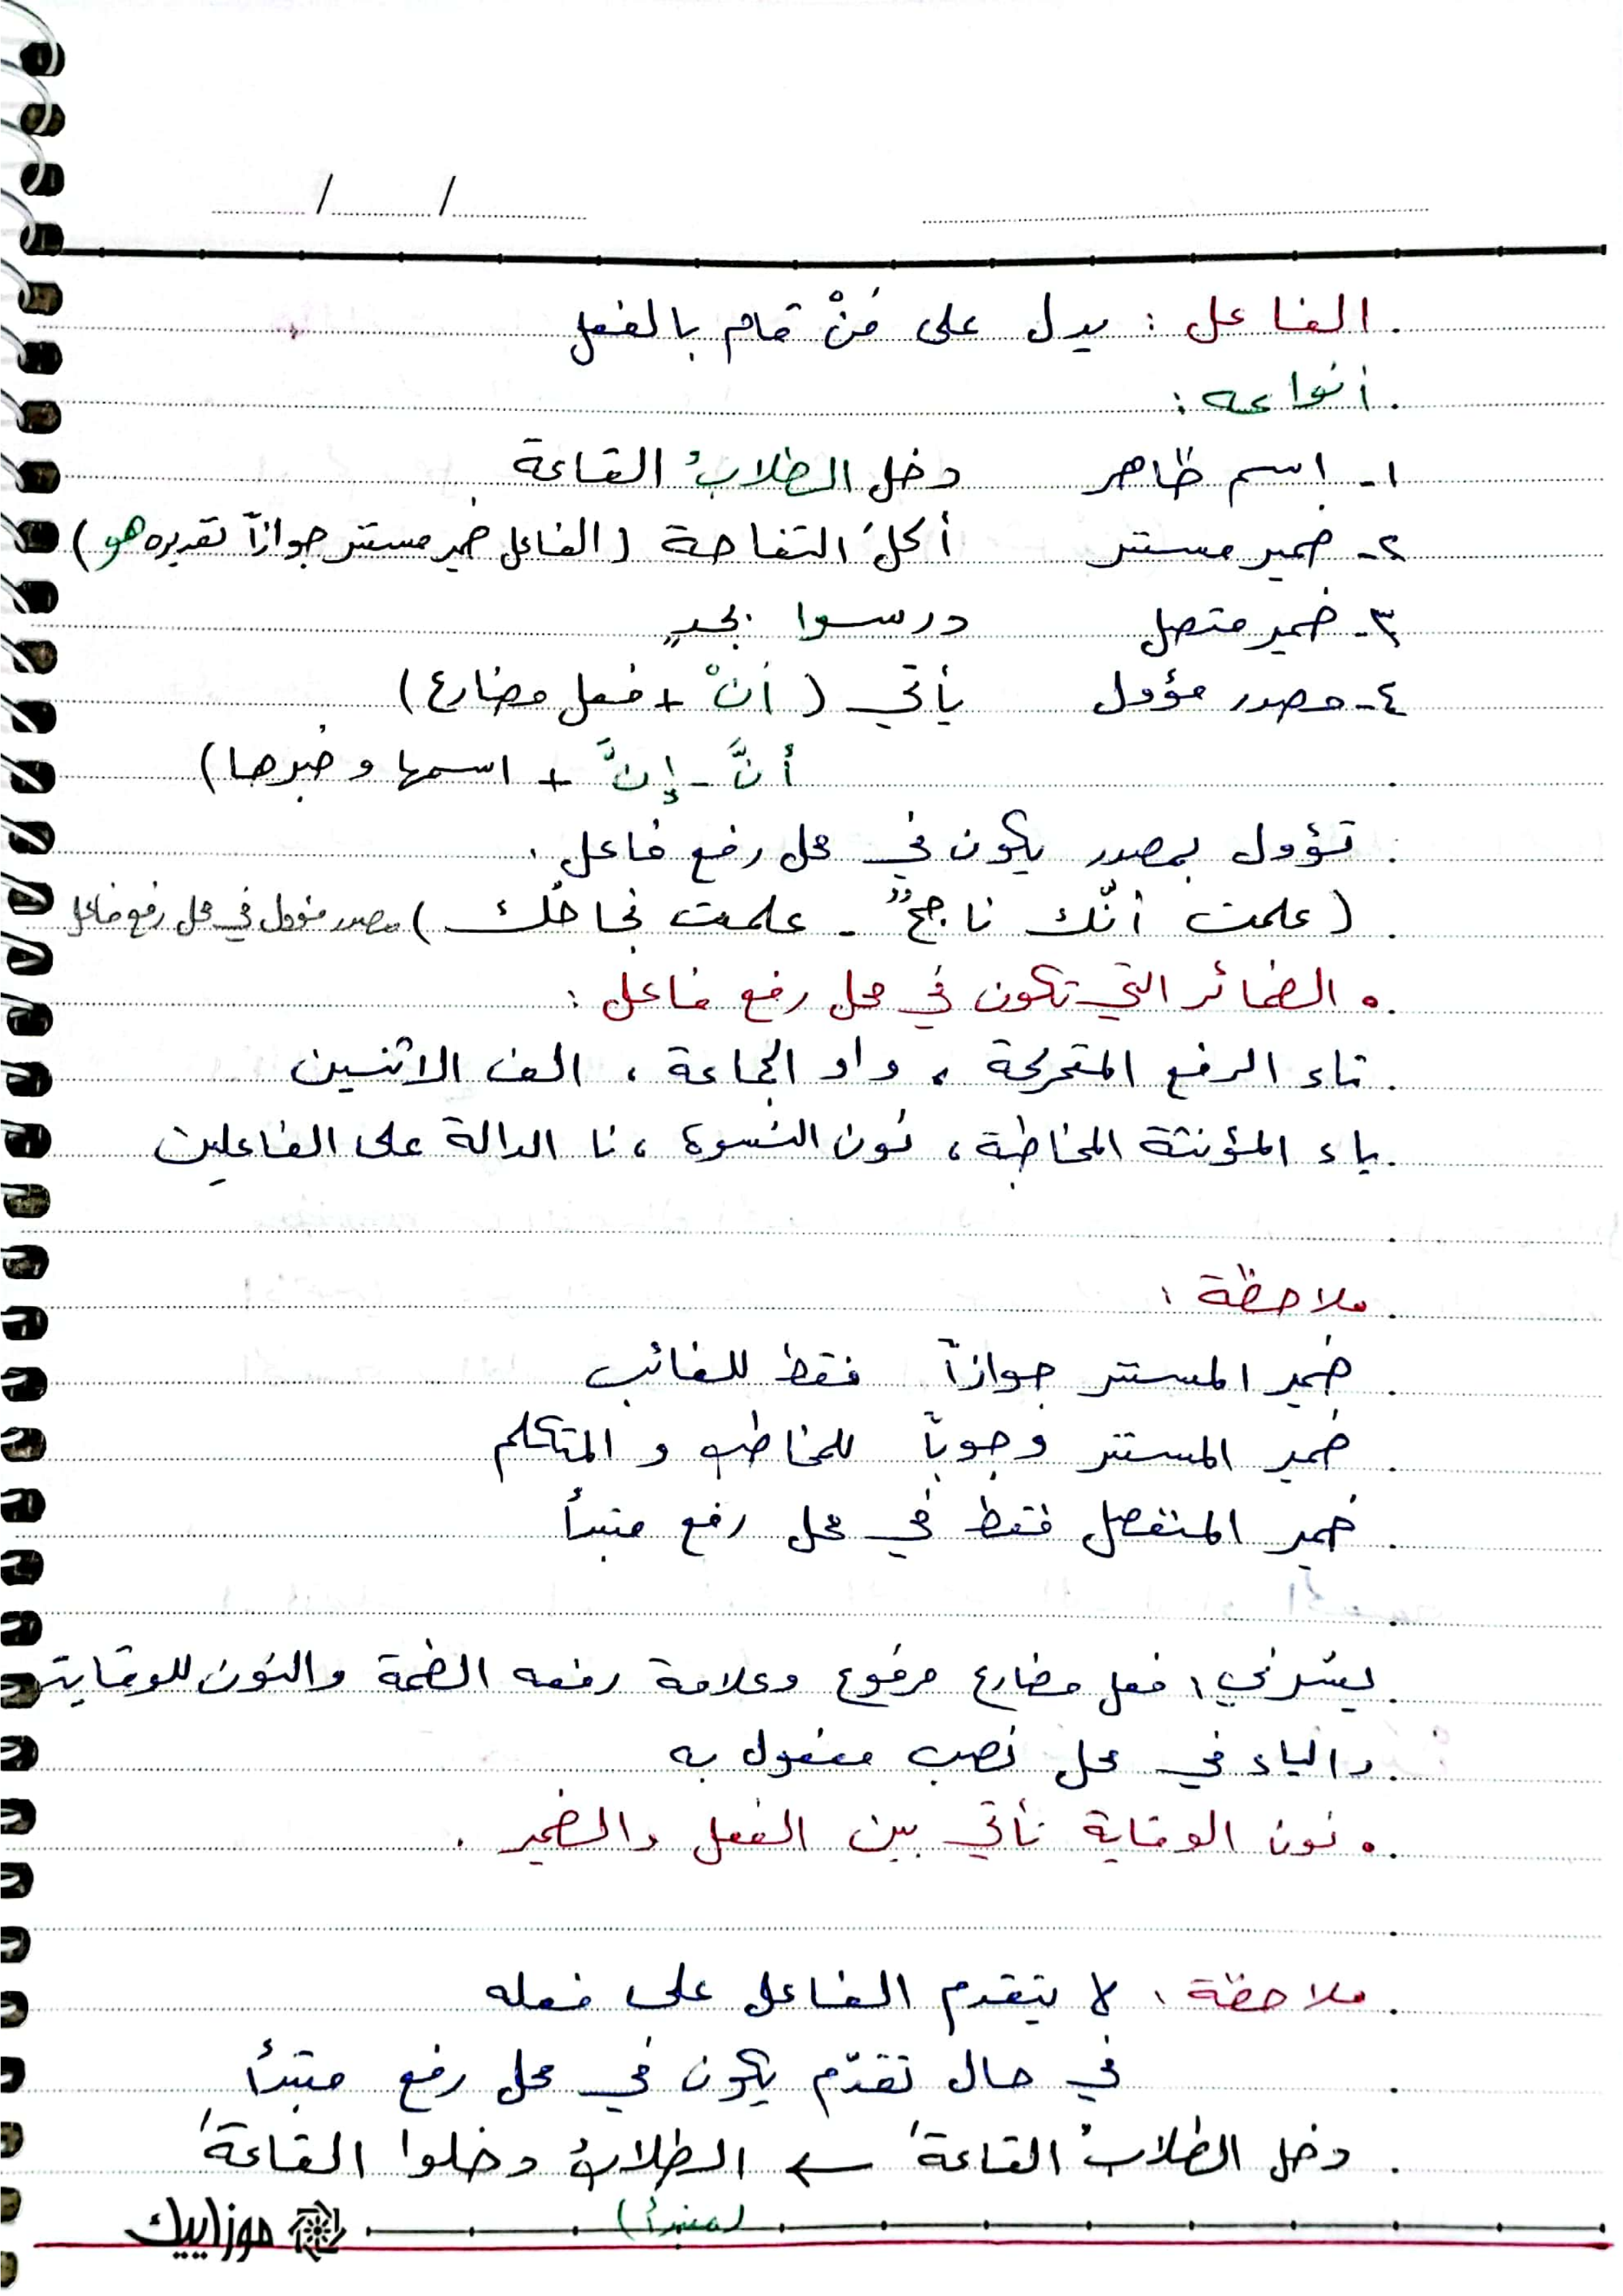 الفاعل : يدل على مَنْ قام بالفعل
أنواعه :
١- اسم ظاهر دخل الطلابُ القاعة
٢- ضمير مستتر أكلَ التفاحة (الفاعل ضمير مستتر جوازاً تقديره هو)
٣- ضمير متصل درسوا بجدٍ
٤- مصدر مؤول يأتي ( أنْ + فعل مضارع)
أنَّ - إنَّ + اسمها وخبرها)
تؤول بمصدر يكون في محل رفع فاعل .
(علمت أنّك ناجحٌ - علمت نجاحُك ) مصدر مؤول في محل رفع فاعل
• الضمائر التي تكون في محل رفع فاعل :
تاء الرفع المتحركة ، واو الجماعة ، الف الاثنين
ياء المؤنثة المخاطبة ، نون النسوة ، نا الدالة على الفاعلين
ملاحظة :
ضمير المستتر جوازاً فقط للغائب
ضمير المستتر وجوباً للمخاطب و المتكلم
ضمير المنفصل فقط في محل رفع مبتدأ
يسّرني : فعل مضارع مرفوع وعلامة رفعه الضمة والنون للوقاية
والياء في محل نصب مفعول به
• نون الوقاية تأتي بين الفعل والضمير .
ملاحظة : لا يتقدم الفاعل على فعله
في حال تقدّم يكون في محل رفع مبتدأ
دخل الطلابُ القاعةَ ← الطلابُ دخلوا القاعةَ
(مبتدأ)
موزاييك